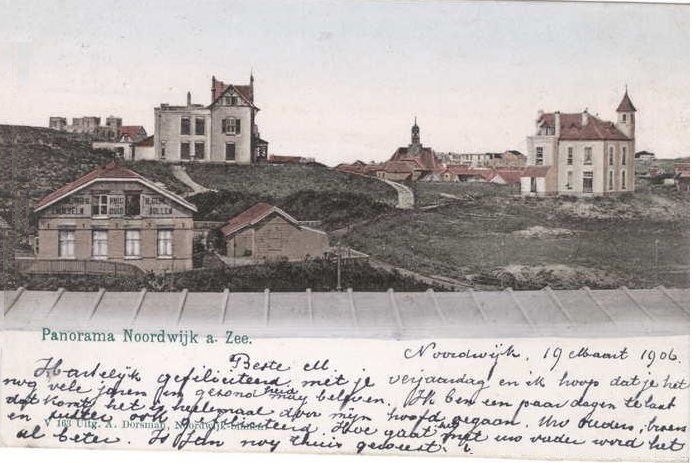 Panorama Noordwijk a. Zee.
Noordwijk, 19 Maart 1906.
Beste M.
Hartelijk gefeliciteerd met je verjaardag en ik hoop dat je het
nog vele jaren in gezondheid beleven. Ik ben een paar dagen te laat
dat komt het is heelemaal door mijn hoofd gegaan. Uw ouders, broers
en zuster ook gefeliciteerd. Hoe gaat het met uw vader word het
V 163 Uitg. A. Dorsman, Noordwijk-binnen
al beter. Is Jan nog thuis geweest.